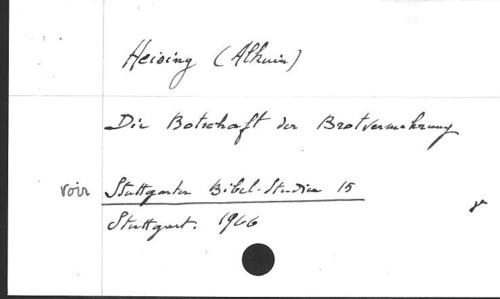 Heising (Alkuin)
Die Botschaft der Brotvermehrung
voir Stuttgarter Bibel-Studien 15
Stuttgart. 1966